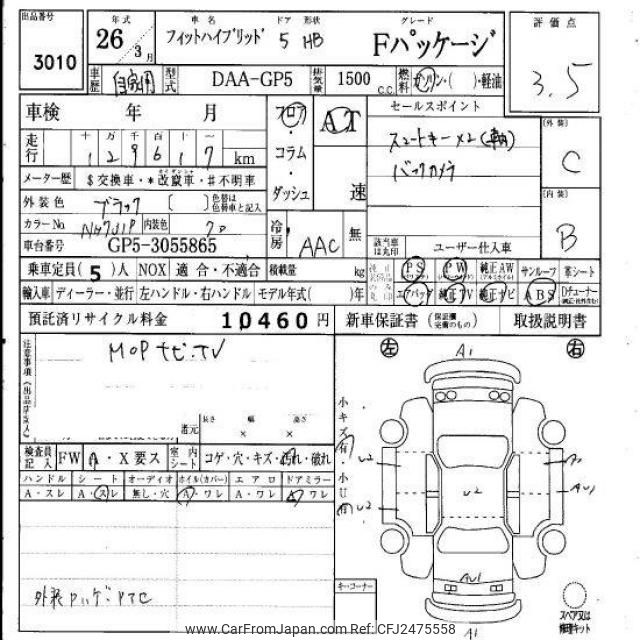 出品番号 年式 車名 ドア 形状 グレード 評価点
3010 26 3月 フィットハイブリッド 5 HB Fパッケージ 3.5
車歴 自家用 型式 DAA-GP5 排気量 1500 c.c. 燃料 ガソリン・( )・軽油
車検 年 月 フロア AT セールスポイント
走行 十 万 千 百 十 一 スマートキー×2 (外装)
129617 km ・コラム・ バックカメラ C
メーター歴 $交換車・*改竄車・#不明車 ダッシュ 速
外装色 ブラック ( ) 色替は色替車と記入 (内装)
カラーNo NH731P 内装色 クロ 冷房 AAC 無 B
車台番号 GP5-3055865 該当車は丸印 ユーザー仕入車
乗車定員(5)人 NOX 適合・不適合 積載量 kg PS PW 純正AW サンルーフ 革シート
輸入車 ディーラー・並行 左ハンドル・右ハンドル モデル年式( )年 エアバッグ 純正TV 純正ナビ ABS
預託済リサイクル料金 10460円 新車保証書 (保証欄完備のもの) 取扱説明書
注意事項(出品店記入) MOPナビ・TV 左 A1 右
長さ 幅 高さ
還元 × ×
小キズ(有)・小U(有)
検査員記入 FW A・X要ス 室内シート コゲ・穴・キズ・汚れ・破れ U2
ハンドル シート オーディオ ホイル(カバー) エアロ ドアミラー U2 AU1
A・スレ A・スレ 無し・穴 A・ワレ A・ワレ A・ワレ U2
AU1
キーコーナー
A1
スペア又は修理キット
www.CarFromJapan.com Ref:CFJ2475558